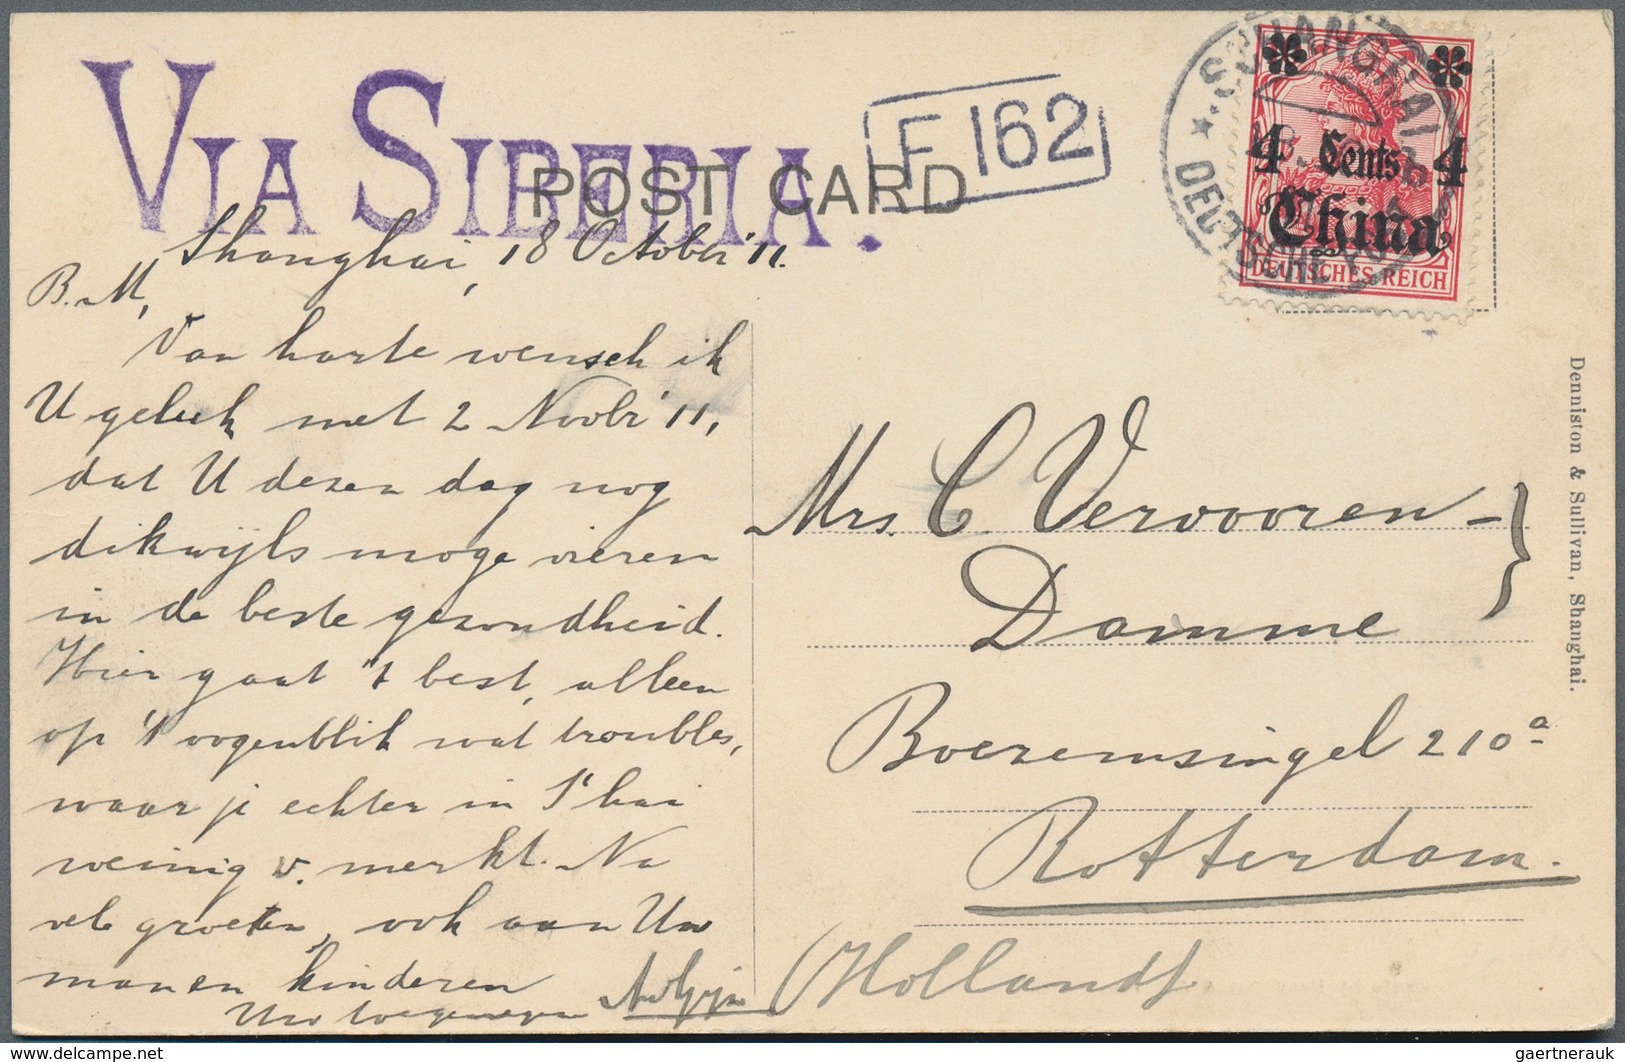 VIA SIBERIA.
POST CARD
F 162
SHANGHAI
DEUTSCHE POST
4 Cents 4
China
DEUTSCHES REICH
Shanghai, 18 October '11.
B. M,
Van harte wensch ik
U geluk met 2 Novbr '11,
dat U dezen dag nog
dikwijls moge vieren
in de beste gezondheid.
Hier gaat 't best, alleen
op 't oogenblik wat troubles,
waar je echter in S'hai
weinig v. merkt. Na
vele groeten, ook aan Uw
man en kinderen
Uw toegenegen
Mrs. C. Vervooren - }
Damme
Boezemsingel 210a
Rotterdam.
(Holland)
Denniston & Sullivan, Shanghai.
delcampe.net
gaertnerauk